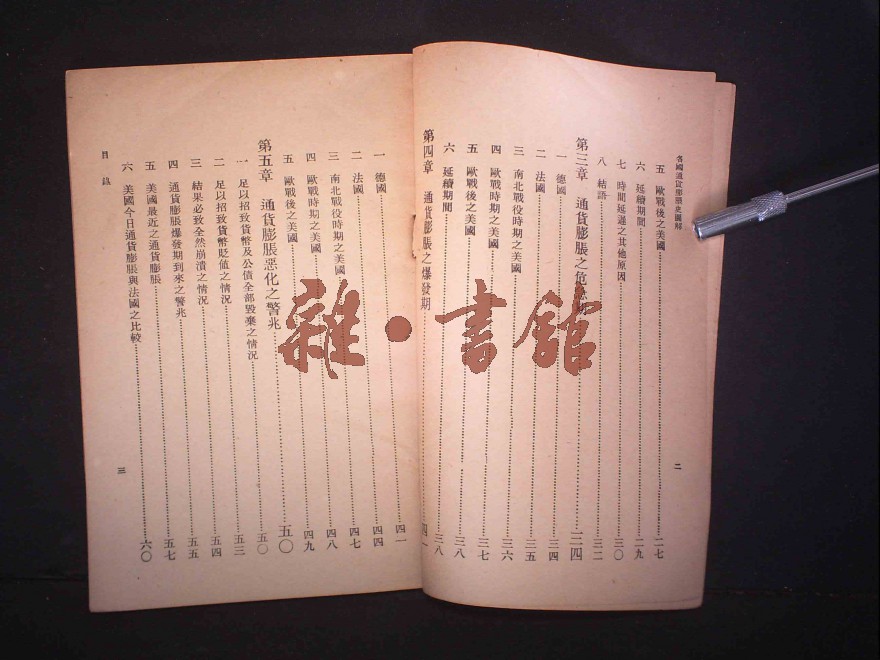 各國通貨膨脹史圖解
二
五 歐戰後之美國……二七
六 延續期間……二九
七 時間延遲之其他原因……三〇
八 結語……三二
第三章 通貨膨脹之危急期……三四
一 德國……三四
二 法國……三五
三 南北戰役時期之美國……三六
四 歐戰時期之美國……三七
五 歐戰後之美國……三八
六 延續期間……三八
第四章 通貨膨脹之爆發期……四一
一 德國……四一
二 法國……四四
三 南北戰役時期之美國……四七
四 歐戰時期之美國……四八
五 歐戰後之美國……四九
第五章 通貨膨脹惡化之警兆……五〇
一 足以招致貨幣及公債全部毀棄之情況……五〇
二 足以招致貨幣貶値之情況……五三
三 結果必致全然崩潰之情況……五四
四 通貨膨脹爆發期到來之警兆……五五
五 美國最近之通貨膨脹……五七
六 美國今日通貨膨脹與法國之比較……六〇
目錄
三
雜·書館